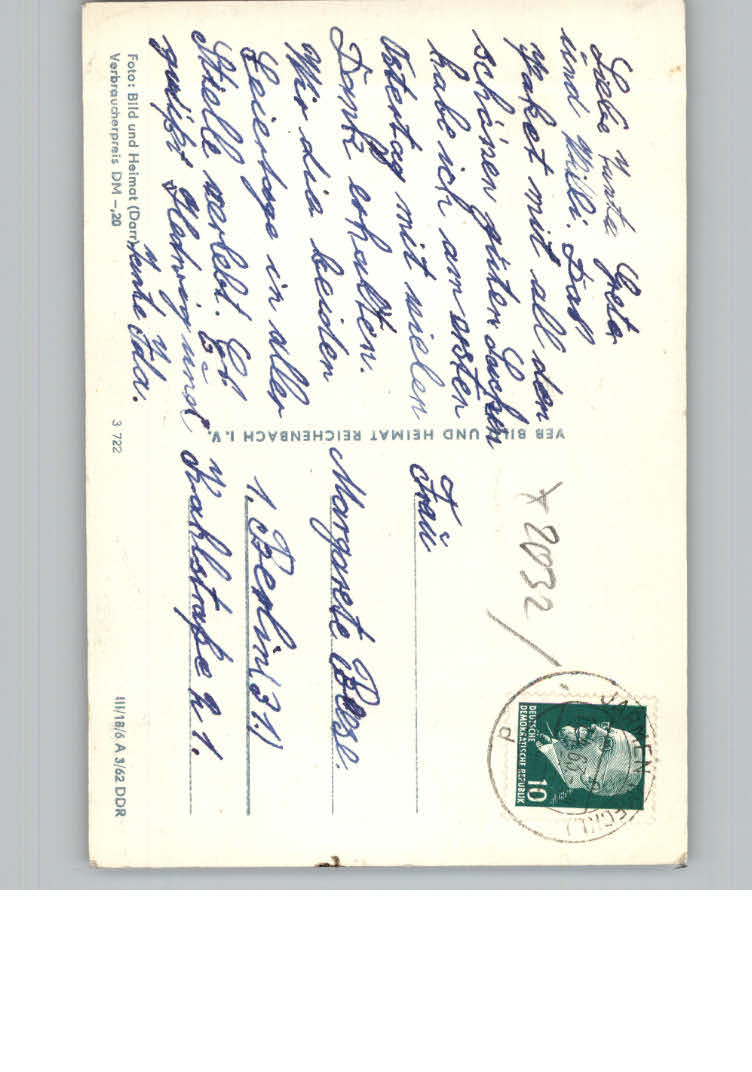 Liebe Tante Grete
und Willi. Daß
Paket mit all den
schönen guten Sachen
habe ich am ersten
Ostertag mit vielen
Dank erhalten.
Wir die beiden
Feiertage in aller
Stiele verlebt. Es
grüßt Hedwig und
Tante Ida.
Foto: Bild und Heimat (Darr)
Verbraucherpreis DM -,20
3 722
III/18/6 A 3/62 DDR
VEB BILD UND HEIMAT REICHENBACH I. V.
x 2032 /
DEUTSCHE
DEMOKRATISCHE REPUBLIK
10
JARMEN
d
Frau
Margarete Bese.
1. Berlin (31.)
Krahlstraße 21.